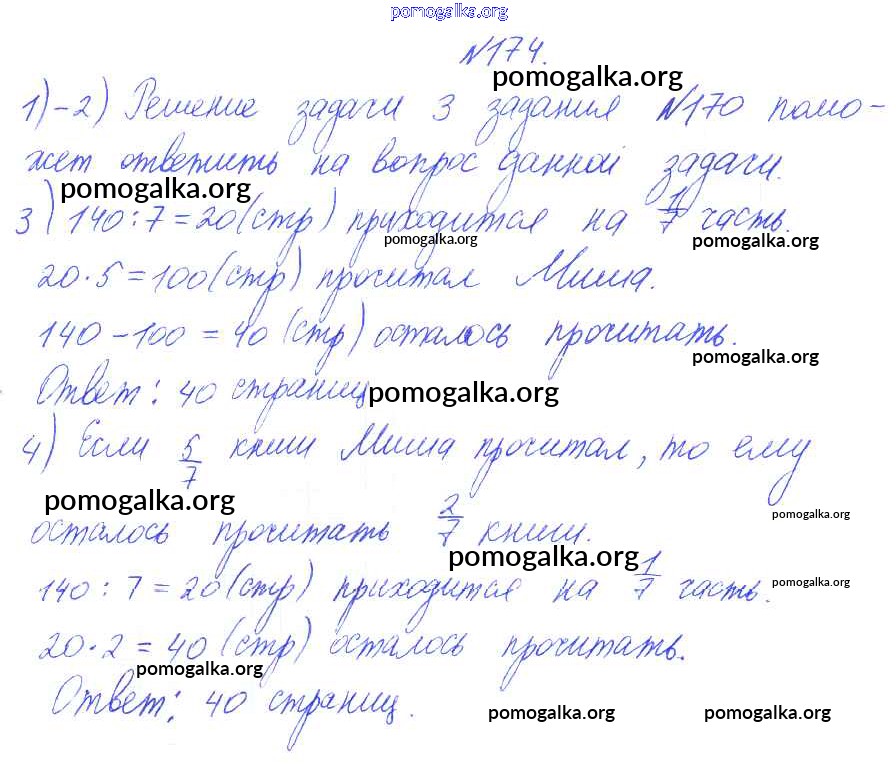 pomogalka.org
№174.
pomogalka.org
1)-2) Решение задачи 3 задания №170 помо-
жет ответить на вопрос данной задачи.
pomogalka.org
3) 140 : 7 = 20 (стр) приходится на 1/7 часть.
pomogalka.org pomogalka.org
20 · 5 = 100 (стр) прочитал Миша.
140 - 100 = 40 (стр) осталось прочитать.
pomogalka.org
Ответ: 40 страниц pomogalka.org
4) Если 5/7 книги Миша прочитал, то ему
pomogalka.org pomogalka.org
осталось прочитать 2/7 книги.
pomogalka.org
140 : 7 = 20 (стр) приходится на 1/7 часть. pomogalka.org
20 · 2 = 40 (стр) осталось прочитать.
pomogalka.org
Ответ: 40 страниц.
pomogalka.org pomogalka.org